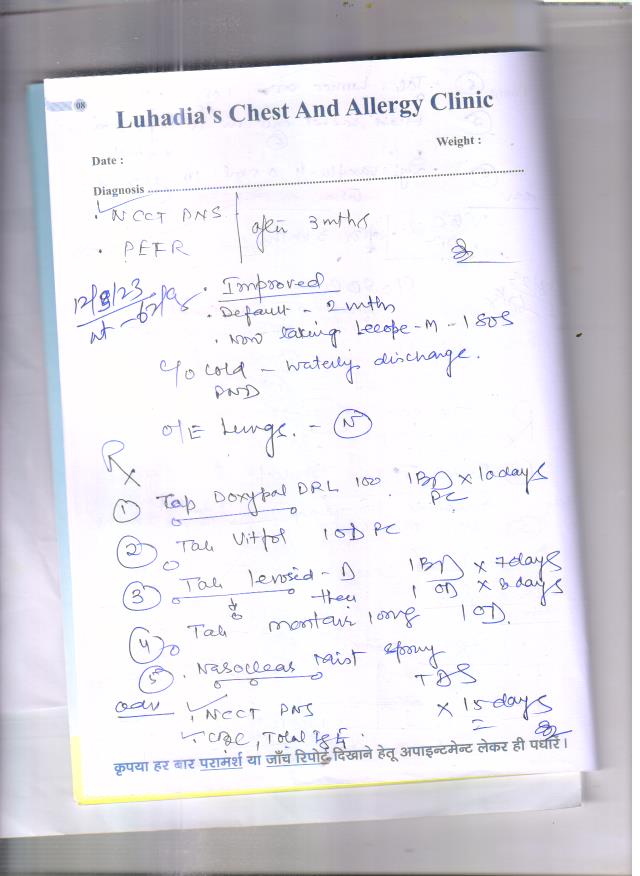 08
Luhadia's Chest And Allergy Clinic
Weight :
Date :
Diagnosis
. NCCT PNS
. PEFR
after 3 mths
12/9/23
. Improved
. Default - 2 mths
. Now taking Lecope-M - 1 SOS
c/o cold - waterly discharge.
PND
O/E Lungs. - N
Rx
1 Tap Doxypal DRL 100 1 BD x 10 days
PC
2 Tab Vitfol 1 OD PC
3 Tab levosid - D 1 BD x 7 days
then 1 OD x 8 days
4 Tab montair 10mg 1 OD.
5 . Nasoclear mist spray
TDS
adv . NCCT PNS x 15 days
CBC, Total IgE
कृपया हर बार परामर्श या जाँच रिपोर्ट दिखाने हेतू अपाइन्टमेन्ट लेकर ही पधारें।